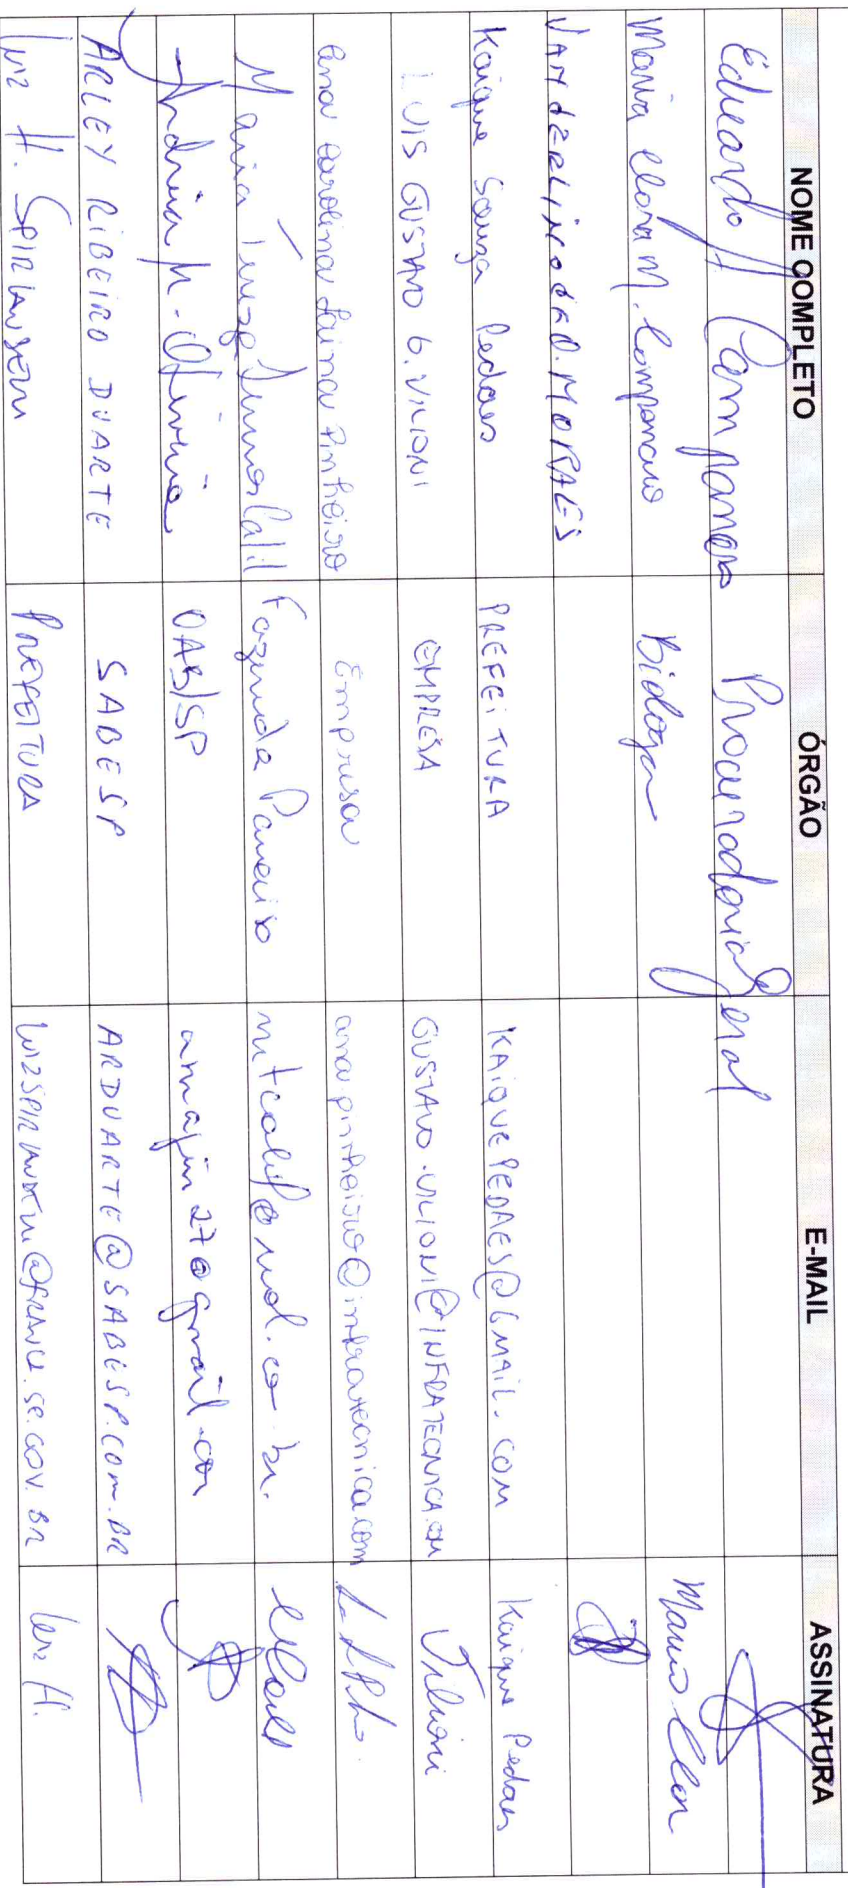 NOME COMPLETO ÓRGÃO E-MAIL ASSINATURA
Eduardo A Campanaro Procuradoria Geral
Maria Clara M. Campanaro Bióloga Maria Clara
VANDERLINO MORAES
Kaique Souza Pedaes PREFEITURA KAIQUEPEDAES@GMAIL.COM Kaique Pedaes
LUIS GUSTAVO G. VILIONI EMPRESA GUSTAVO.VILIONI@INFRATECNICA.COM Vilioni
Ana Carolina Faina Pinheiro Empresa ana.pinheiro@infratecnica.com
Maria Tereza Calil Fazenda mtcalil@uol.com.br.
Andreia M. Oliveira OAB/SP @gmail.com
ARLEY RIBEIRO DUARTE SABESP ARDUARTE@SABESP.COM.BR
Luiz H. PREFEITURA Luiz H.